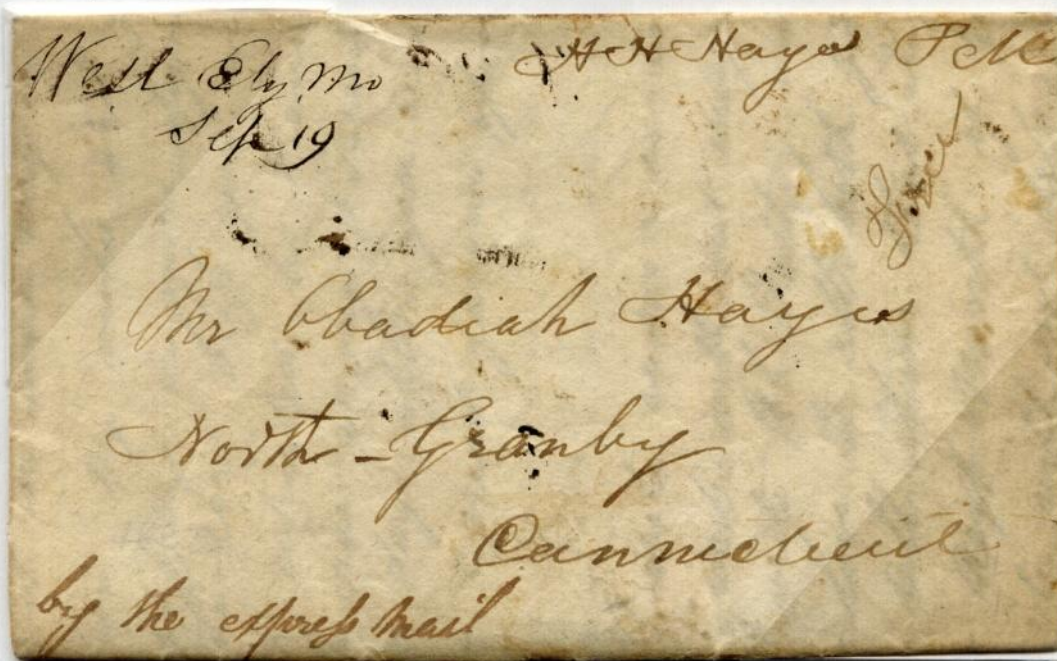 West Ely Mo
Sep 19
H H Hayes P M
Free
Mr Obadiah Hayes
North - Granby
Connecticut
by the express mail